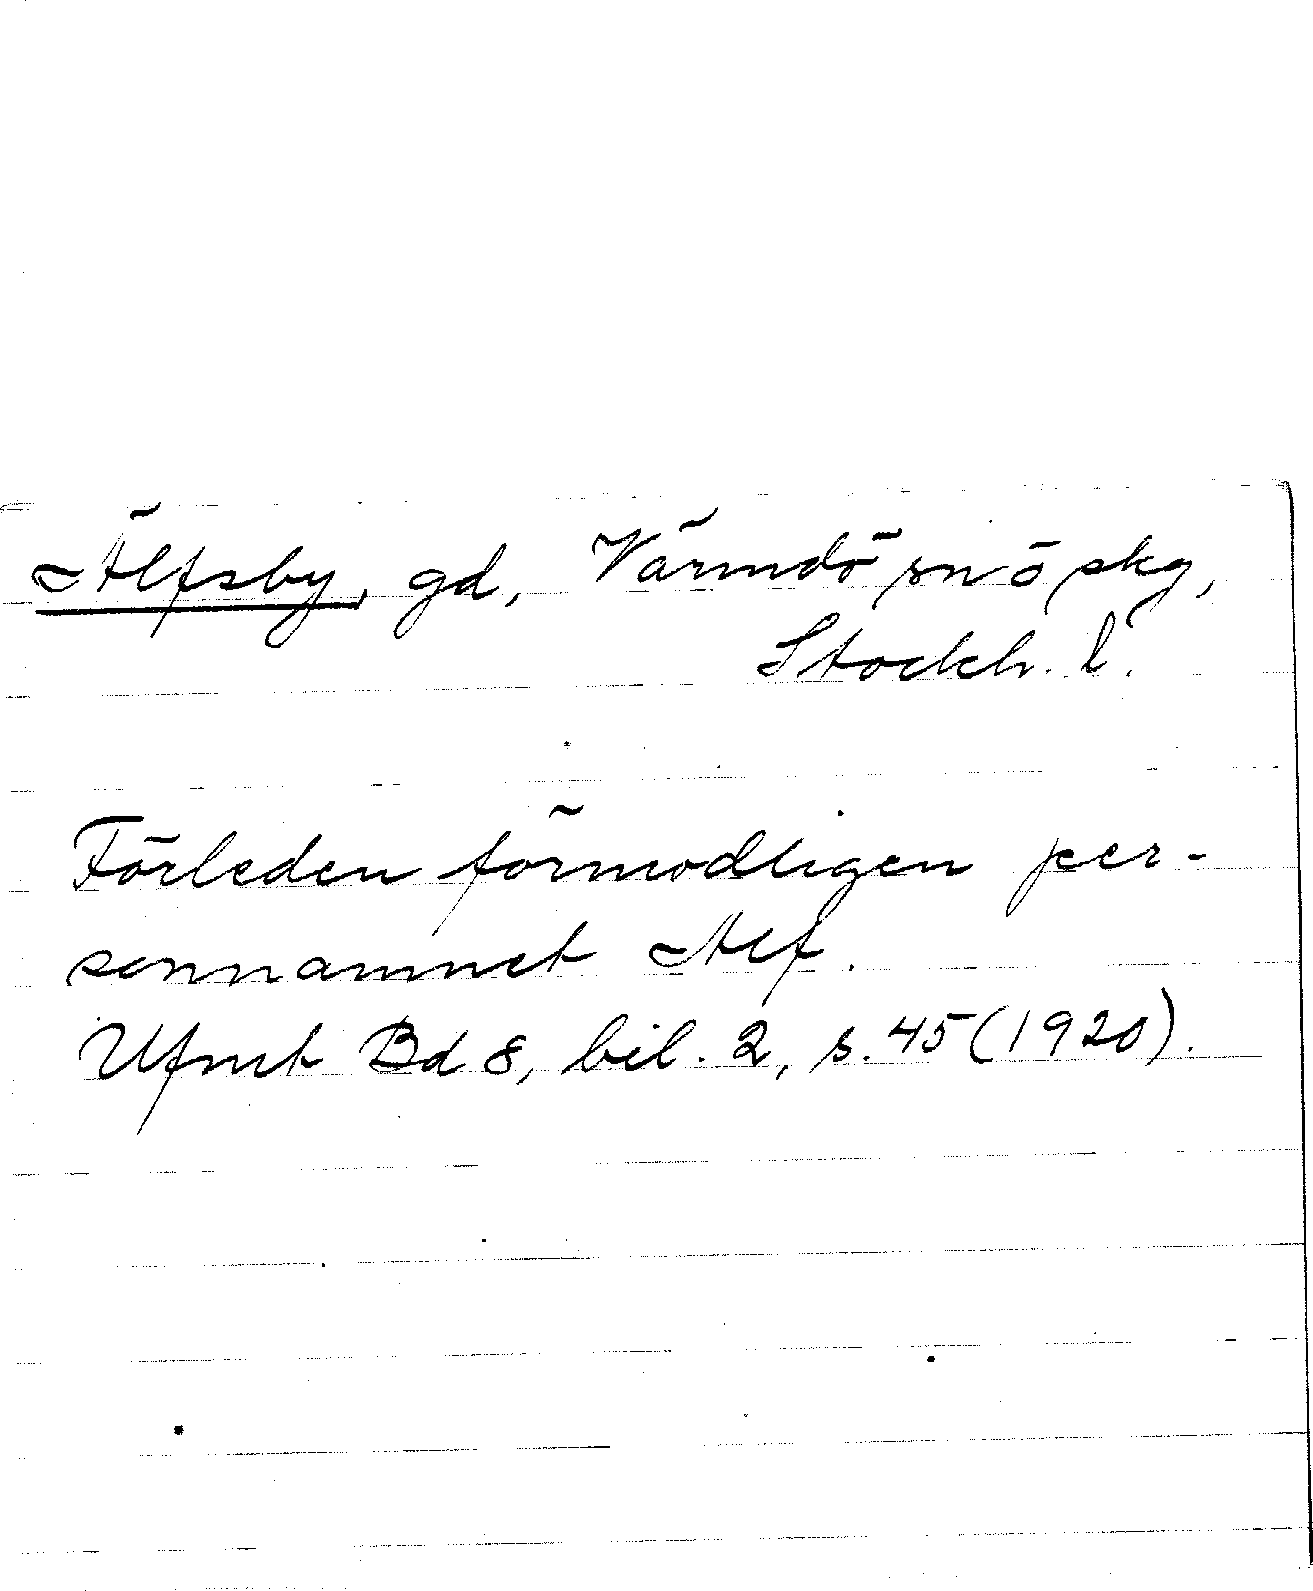 Älfsby, gd, Värmdö sn ö skg,
Stockh. l.
Förleden förmodligen per-
sonnamnet Alf.
Ufmt Bd 8, bil. 2, s. 45 (1920).